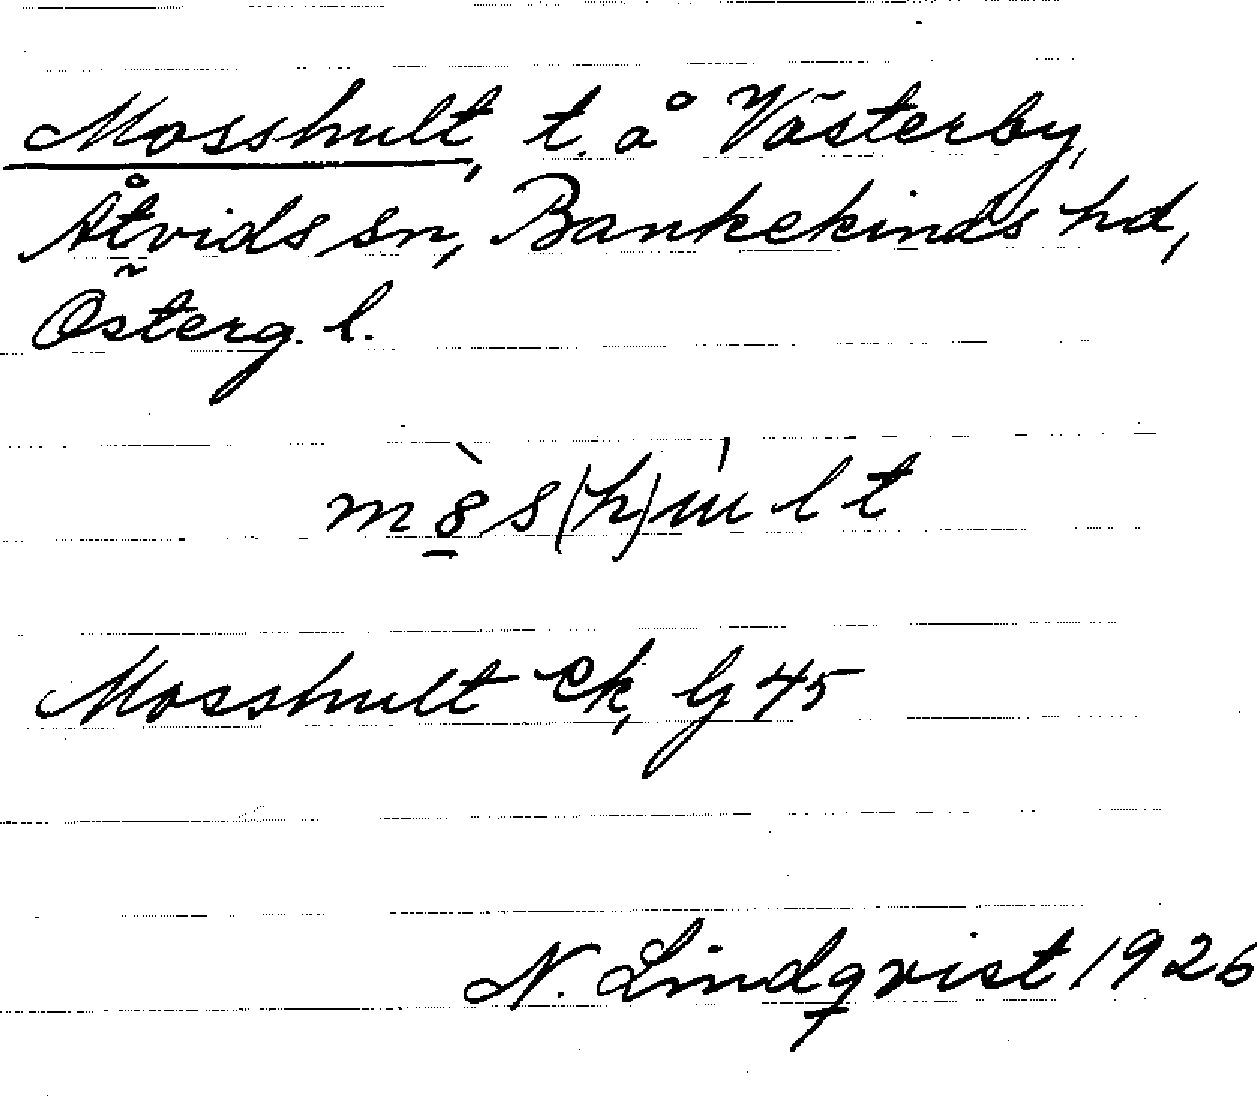 Mosshult, t. å Västerby,
Åtvids sn, Bankekinds hd,
Österg. l.
Mosshult Ek, bl 45
N. Lindqvist 1926